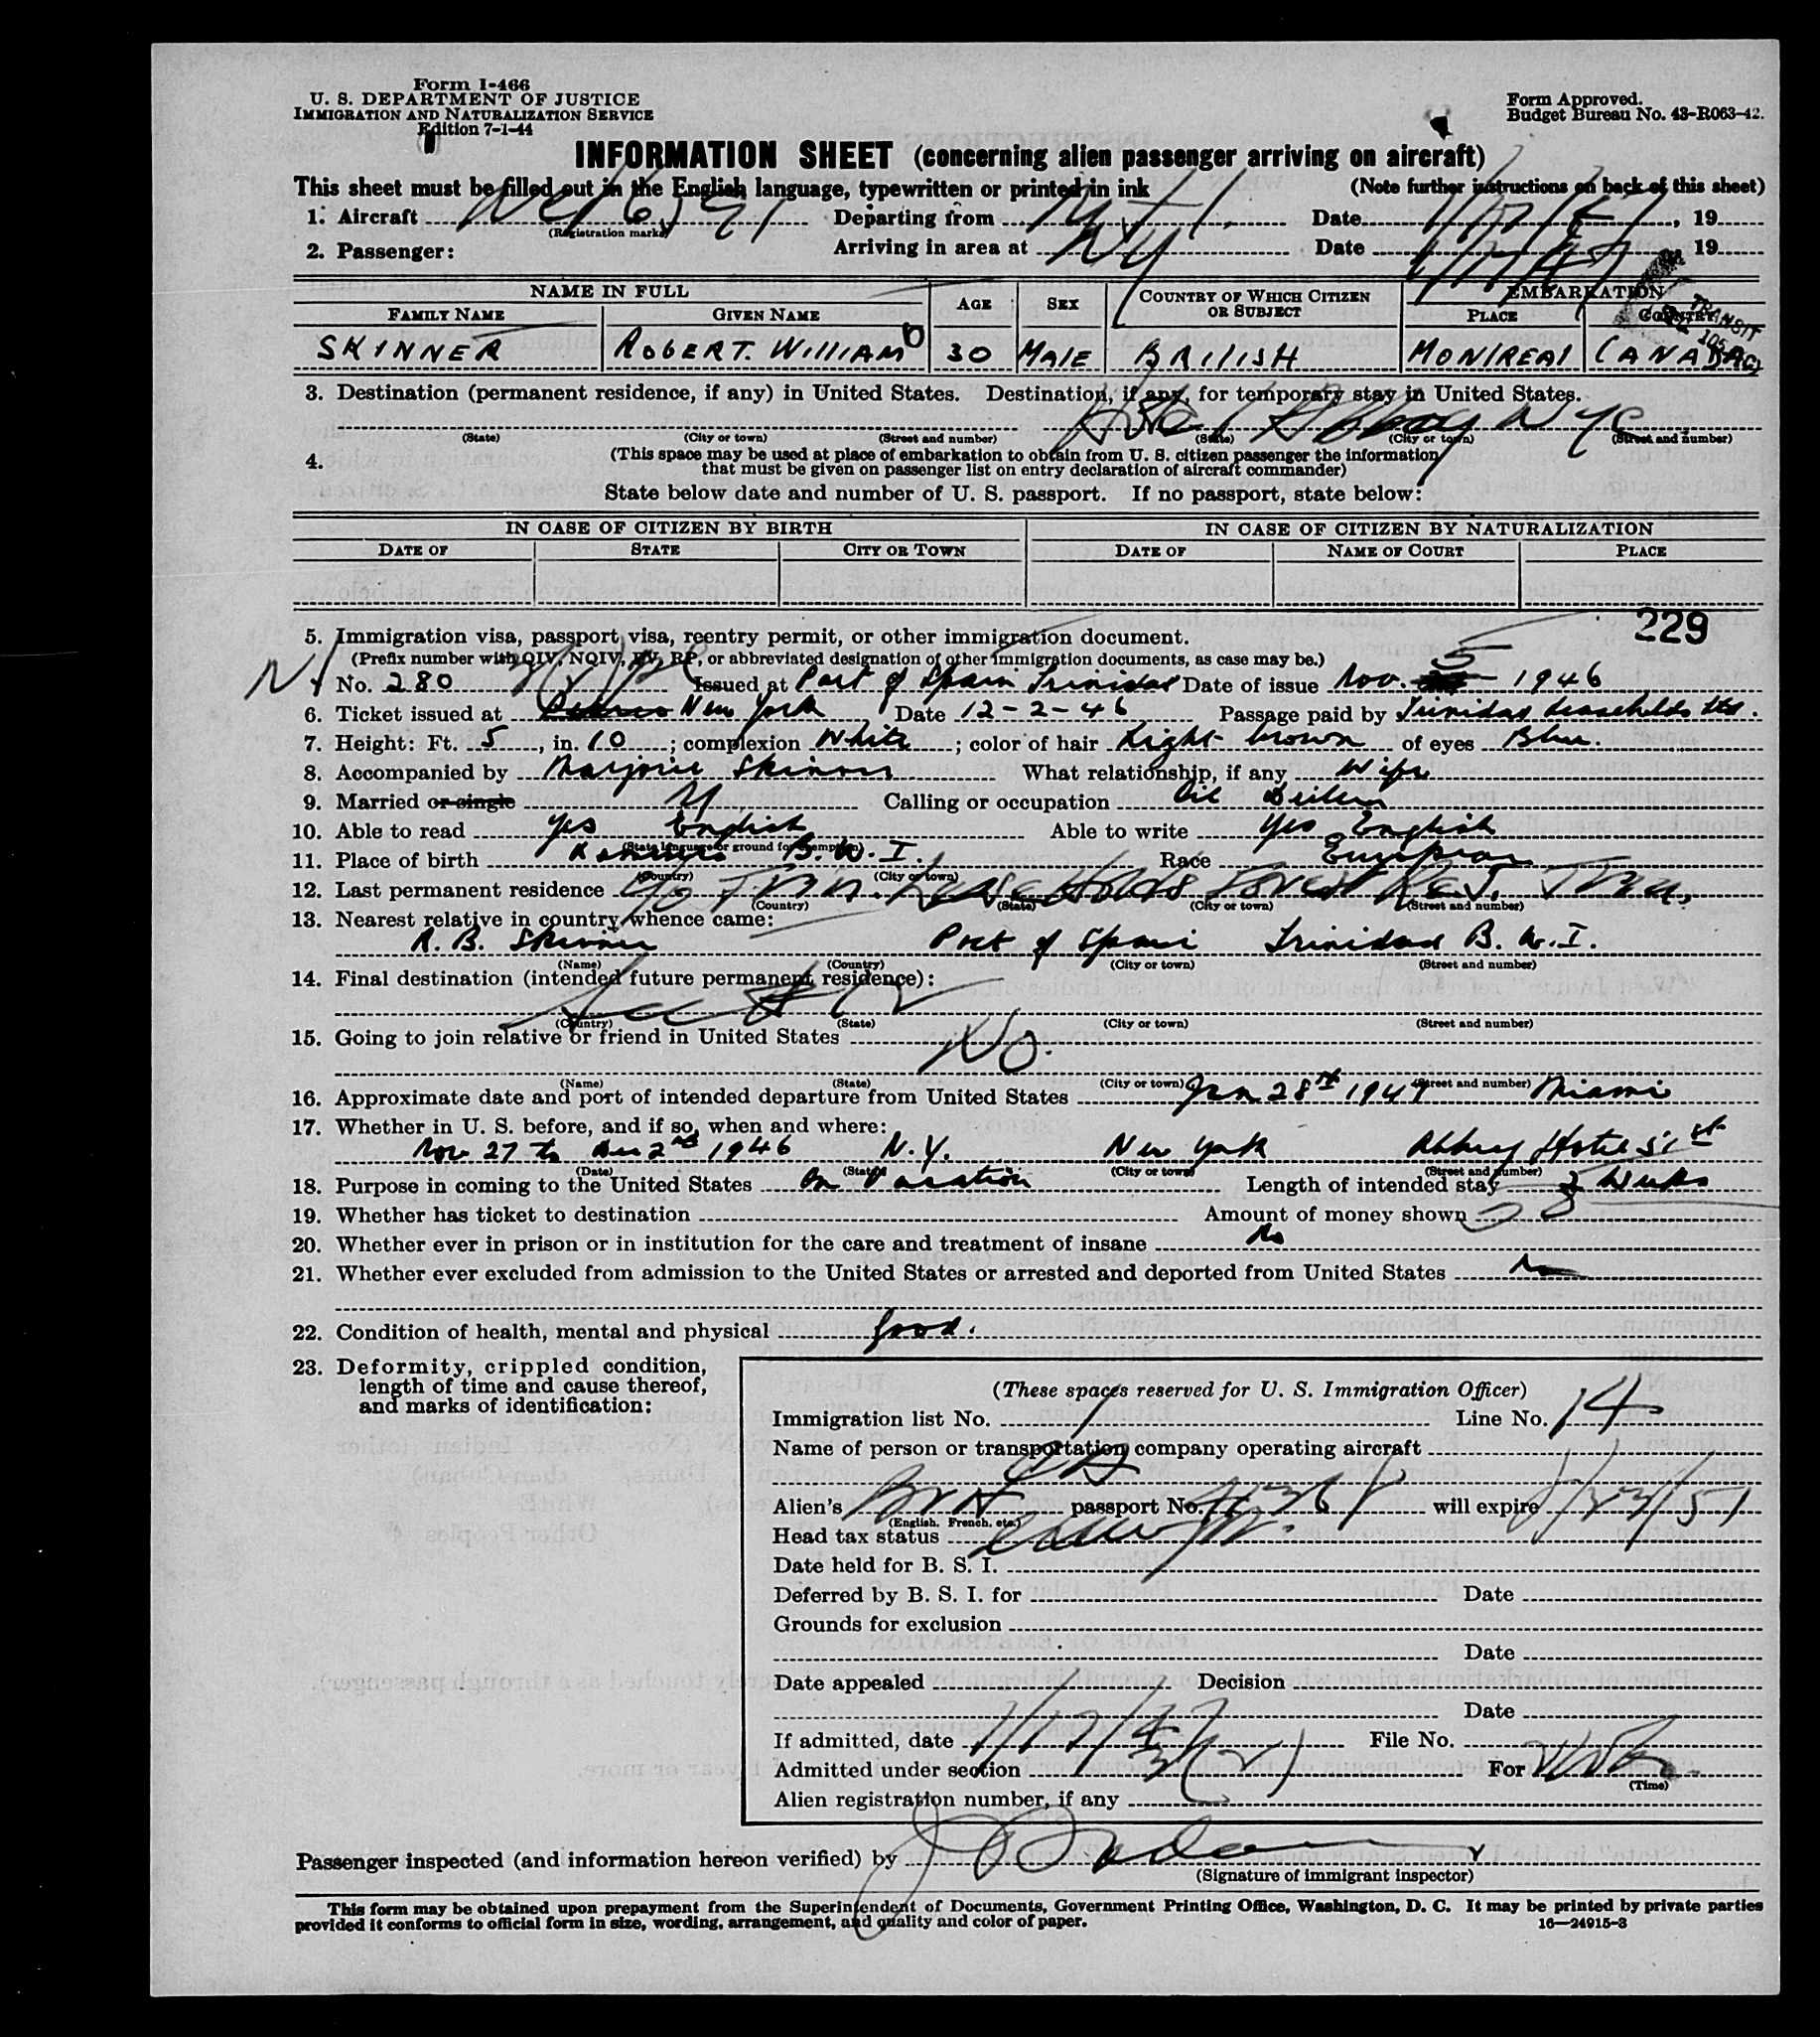 Form I-466
U. S. DEPARTMENT OF JUSTICE
IMMIGRATION AND NATURALIZATION SERVICE
Edition 7-1-44
Form Approved.
Budget Bureau No. 43-R063-42.
INFORMATION SHEET (concerning alien passenger arriving on aircraft)
This sheet must be filled out in the English language, typewritten or printed in ink (Note further instructions on back of this sheet)
1. Aircraft Departing from Mtl. Date 1/17/47, 19
(Registration marks)
2. Passenger: Arriving in area at NY Date 1/17/47 19
NAME IN FULL AGE SEX COUNTRY OF WHICH CITIZEN OR SUBJECT EMBARKATION
FAMILY NAME GIVEN NAME PLACE COUNTRY
TRANSIT
SKINNER ROBERT. WILLIAM 30 MALE BRITISH MONTREAL CANADA
3. Destination (permanent residence, if any) in United States. Destination, if any, for temporary stay in United States.
Hotel Abbey NYC
(State) (City or town) (Street and number) (State) (City or town) (Street and number)
4. (This space may be used at place of embarkation to obtain from U. S. citizen passenger the information
that must be given on passenger list on entry declaration of aircraft commander)
State below date and number of U. S. passport. If no passport, state below:
IN CASE OF CITIZEN BY BIRTH IN CASE OF CITIZEN BY NATURALIZATION
DATE OF STATE CITY OR TOWN DATE OF NAME OF COURT PLACE
229
5. Immigration visa, passport visa, reentry permit, or other immigration document.
(Prefix number with QIV, NQIV, PV, RP, or abbreviated designation of other immigration documents, as case may be.)
No. 280 Issued at Port of Spain Trinidad Date of issue Nov. 5 1946
6. Ticket issued at New York Date 12-2-46 Passage paid by Trinidad Leaseholds Ltd.
7. Height: Ft. 5, in. 10; complexion White; color of hair Light brown of eyes Blue.
8. Accompanied by Marjorie Skinner What relationship, if any Wife
9. Married or single M Calling or occupation Oil Driller
10. Able to read Yes English Able to write Yes English
(State language or ground for exemption)
11. Place of birth B.W.I. Race European
(Country) (City or town)
12. Last permanent residence c/o Trin. Leaseholds Forest Res. Trin.
(Country) (State) (City or town) (Street and number)
13. Nearest relative in country whence came:
R. B. Skinner Port of Spain Trinidad B.W.I.
(Name) (Country) (City or town) (Street and number)
14. Final destination (intended future permanent residence):
(Country) (State) (City or town) (Street and number)
15. Going to join relative or friend in United States No.
(Name) (State) (City or town) (Street and number)
16. Approximate date and port of intended departure from United States Jan 28th 1947 Miami
17. Whether in U. S. before, and if so, when and where:
Nov 27 to Dec 2nd 1946 N.Y. New York Abbey Hotel 51st
(Date) (State) (City or town) (Street and number)
18. Purpose in coming to the United States On Vacation Length of intended stay 2 Weeks
19. Whether has ticket to destination Amount of money shown
20. Whether ever in prison or in institution for the care and treatment of insane No
21. Whether ever excluded from admission to the United States or arrested and deported from United States No
22. Condition of health, mental and physical Good.
23. Deformity, crippled condition,
length of time and cause thereof,
and marks of identification:
(These spaces reserved for U. S. Immigration Officer)
Immigration list No. 1 Line No. 14
Name of person or transportation company operating aircraft
Alien's Brit passport No. will expire
(English, French, etc.)
Head tax status
Date held for B. S. I.
Deferred by B. S. I. for Date
Grounds for exclusion
Date
Date appealed Decision
Date
If admitted, date 1/17/47 File No.
Admitted under section 3(2) For
(Time)
Alien registration number, if any
Passenger inspected (and information hereon verified) by
(Signature of immigrant inspector)
This form may be obtained upon prepayment from the Superintendent of Documents, Government Printing Office, Washington, D. C. It may be printed by private parties
provided it conforms to official form in size, wording, arrangement, and quality and color of paper. 16—24915-3